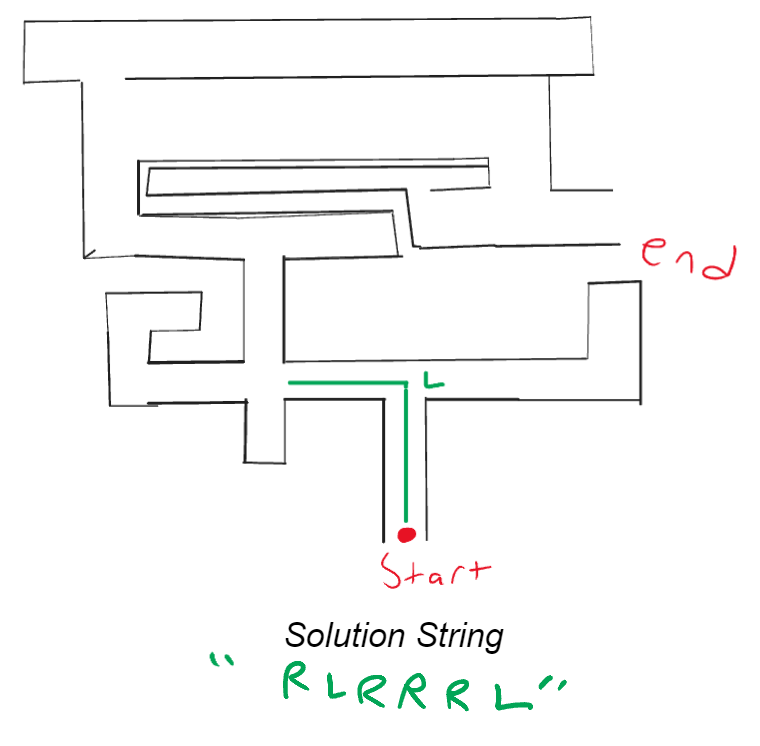 end
L
Start
Solution String
" RLRRRL"